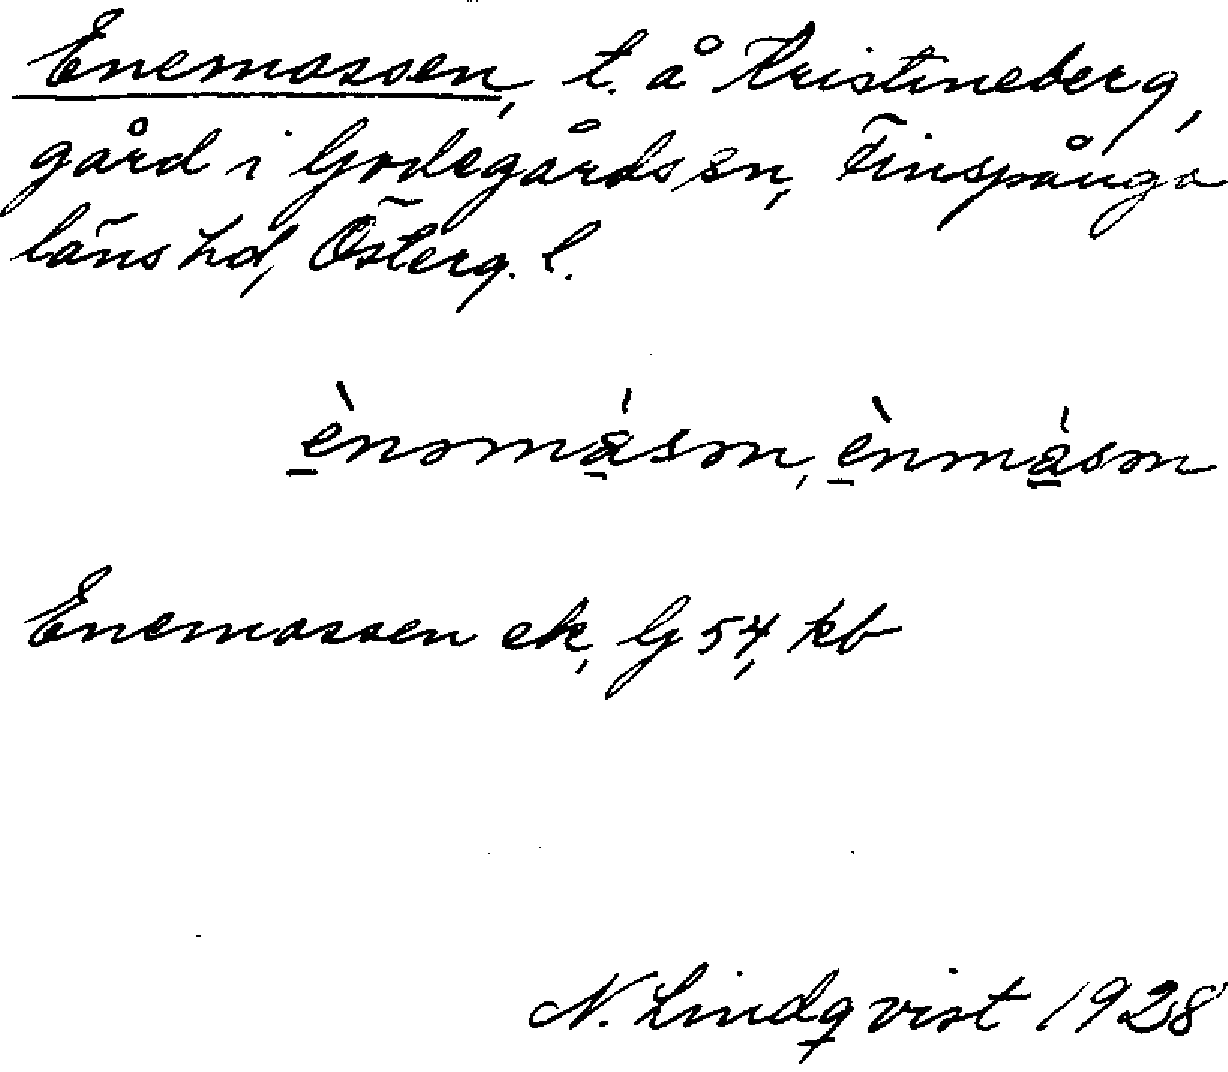 Enemossen, t. å Kristineberg,
gård i Godegårds sn, Finspånga
läns hd, Österg. l.
ènəmásən, ènmásən
Enemossen ek, G 54, kb
N. Lindqvist 1928